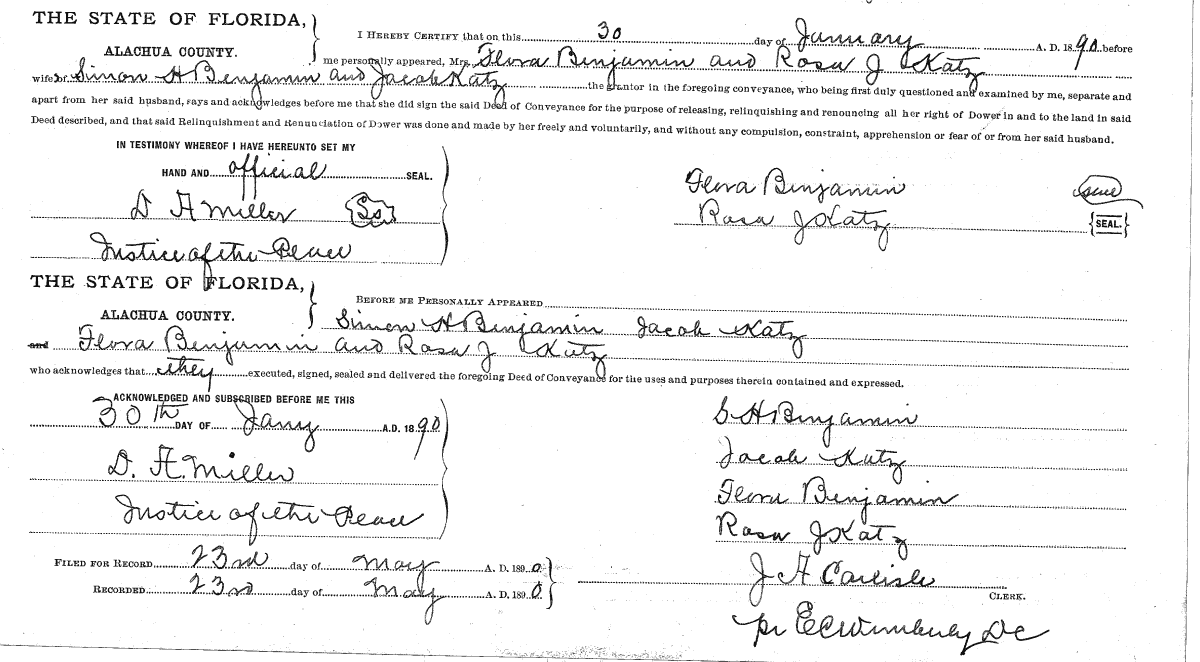 THE STATE OF FLORIDA,
ALACHUA COUNTY.
I HEREBY CERTIFY that on this 30 day of January A. D. 1890 before
me personally appeared, Mrs. Flora Benjamin and Rosa J Katz
wife of Simon H Benjamin and Jacob Katz the grantor in the foregoing conveyance, who being first duly questioned and examined by me, separate and
apart from her said husband, says and acknowledges before me that she did sign the said Deed of Conveyance for the purpose of releasing, relinquishing and renouncing all her right of Dower in and to the land in said
Deed described, and that said Relinquishment and Renunciation of Dower was done and made by her freely and voluntarily, and without any compulsion, constraint, apprehension or fear of or from her said husband.
IN TESTIMONY WHEREOF I HAVE HEREUNTO SET MY
HAND AND official SEAL.
D H Miller
Justice of the Peace
Flora Benjamin seal
Rosa J Katz {SEAL.}
THE STATE OF FLORIDA,
ALACHUA COUNTY.
BEFORE ME PERSONALLY APPEARED
Simon H Benjamin Jacob Katz
and Flora Benjamin and Rosa J Katz
who acknowledges that they executed, signed, sealed and delivered the foregoing Deed of Conveyance for the uses and purposes therein contained and expressed.
ACKNOWLEDGED AND SUBSCRIBED BEFORE ME THIS
30th DAY OF Jany A.D. 1890
D. H. Miller
Justice of the Peace
S H Benjamin
Jacob Katz
Flora Benjamin
Rosa J Katz
FILED FOR RECORD 23rd day of May A. D. 1890
RECORDED 23rd day of May A. D. 1890
J A Carlisle
CLERK.
pr E C Wimberly D C